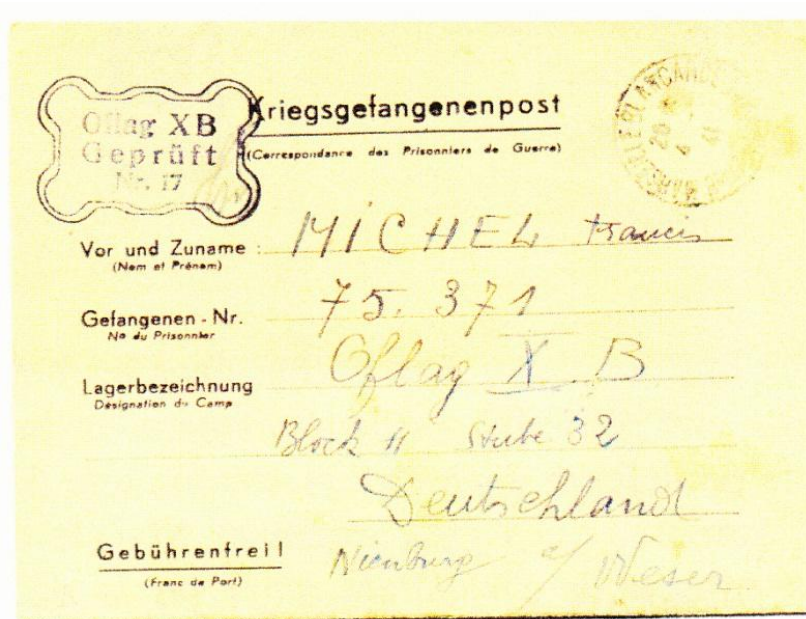 Oflag XB
Geprüft
Nr. 17
Kriegsgefangenenpost
(Correspondance des Prisonniers de Guerre)
26
4
41
Vor und Zuname : MICHEL Francis
(Nom et Prénom)
Gefangenen - Nr. 75.371
No du Prisonnier
Lagerbezeichnung Oflag X B
Désignation du Camp
Block II Stube 32
Deutschland
Gebührenfrei! Nienburg a/ Weser
(Franc de Port)